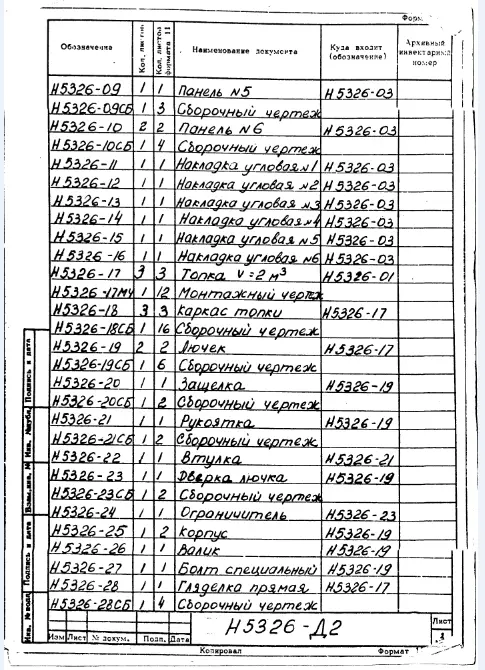 Форм
Обозначение Кол. листов Кол. листов формата 11 Наименование документа Куда входит (обозначение) Архивный инвентарный номер
Н5326-09 1 1 Панель №5 Н5326-03
Н5326-09СБ 1 3 Сборочный чертеж
Н5326-10 2 2 Панель №6 Н5326-03
Н5326-10СБ 1 4 Сборочный чертеж
Н5326-11 1 1 Накладка угловая №1 Н5326-03
Н5326-12 1 1 Накладка угловая №2 Н5326-03
Н5326-13 1 1 Накладка угловая №3 Н5326-03
Н5326-14 1 1 Накладка угловая №4 Н5326-03
Н5326-15 1 1 Накладка угловая №5 Н5326-03
Н5326-16 1 1 Накладка угловая №6 Н5326-03
Н5326-17 3 3 Топка V=2м³ Н5326-01
Н5326-17МЧ 1 12 Монтажный чертеж
Н5326-18 3 3 Каркас топки Н5326-17
Н5326-18СБ 1 16 Сборочный чертеж
Н5326-19 2 2 Лючек Н5326-17
Н5326-19СБ 1 6 Сборочный чертеж
Н5326-20 1 1 Защелка Н5326-19
Н5326-20СБ 1 2 Сборочный чертеж
Н5326-21 1 1 Рукоятка Н5326-19
Н5326-21СБ 1 2 Сборочный чертеж
Н5326-22 1 1 Втулка Н5326-21
Н5326-23 1 1 Дверка лючка Н5326-19
Н5326-23СБ 1 2 Сборочный чертеж
Н5326-24 1 1 Ограничитель Н5326-23
Н5326-25 1 2 Корпус Н5326-19
Н5326-26 1 1 Валик Н5326-19
Н5326-27 1 1 Болт специальный Н5326-19
Н5326-28 1 1 Гляделка прямая Н5326-17
Н5326-28СБ 1 4 Сборочный чертеж
Подпись и дата
Инв. № дубл.
Взам. инв. №
Подпись и дата
Инв. № подл.
Изм Лист № докум. Подп. Дата
Н5326-Д2
Лист
Копировал Формат